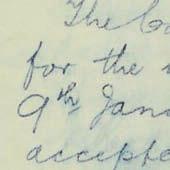 The
for the
9th Jan
accepte